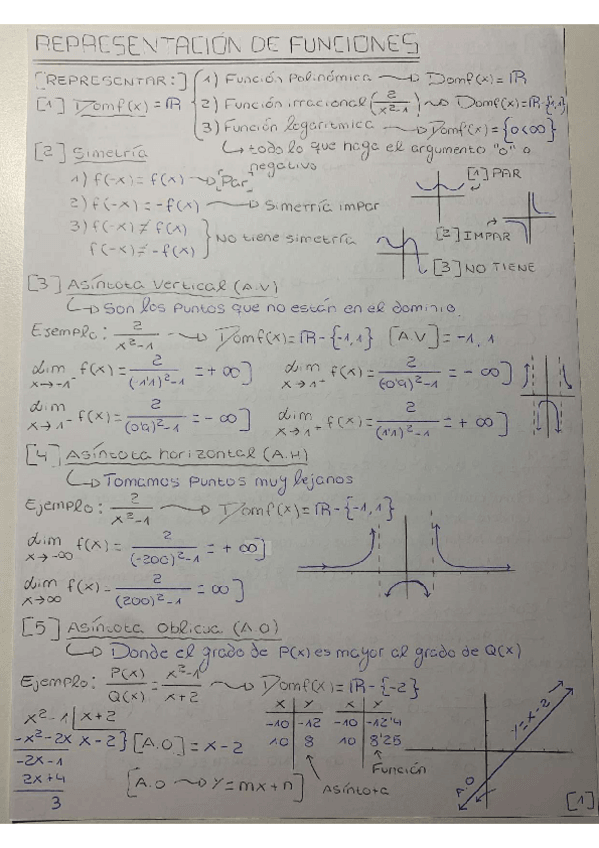 REPRESENTACIÓN DE FUNCIONES
[REPRESENTAR:] 1) Función Polinómica → Domf(x) = ℝ
[1] Domf(x) = ℝ 2) Función irracional (2/(x²-1)) → Domf(x) = ℝ - {1,1}
3) Función logarítmica → Domf(x) = {0<∞}
↳ todo lo que haga el argumento "0" o negativo
[2] Simetría
1) f(-x) = f(x) → [Par]
[1] PAR
2) f(-x) = -f(x) → Simetría impar
3) f(-x) ≠ f(x)
f(-x) ≠ -f(x) } No tiene simetría
[2] IMPAR
[3] NO TIENE
[3] Asíntota Vertical (A.V)
↳ Son los puntos que no están en el dominio.
Ejemplo: 2/(x²-1) → Domf(x) = ℝ - {-1,1} [A.V] = -1, 1
lim x→-1⁻ f(x) = 2/((-1'1)²-1) = +∞]
lim x→-1⁻ f(x) = 2/((-0'9)²-1) = -∞]
lim x→1⁻ f(x) = 2/((0'9)²-1) = -∞]
lim x→1⁺ f(x) = 2/((1'1)²-1) = +∞]
[4] Asíntota horizontal (A.H)
↳ Tomamos puntos muy lejanos
Ejemplo: 2/(x²-1) → Domf(x) = ℝ - {-1,1}
lim x→-∞ f(x) = 2/((-200)²-1) = +∞]
lim x→∞ f(x) = 2/((200)²-1) = ∞]
[5] Asíntota Oblicua (A.O)
↳ Donde el grado de P(x) es mayor al grado de Q(x)
Ejemplo: P(x)/Q(x) = (x²-1)/(x+2) → Domf(x) = ℝ - {-2}
x²-1 | x+2
-x²-2x x-2} [A.O] = x-2
-2x-1
2x+4
3
x y
-10 -12
10 8
Asíntota
x y
-10 -12'4
10 8'25
Función
[A.O → y = mx+n]
y=x-2
A.O
[1]